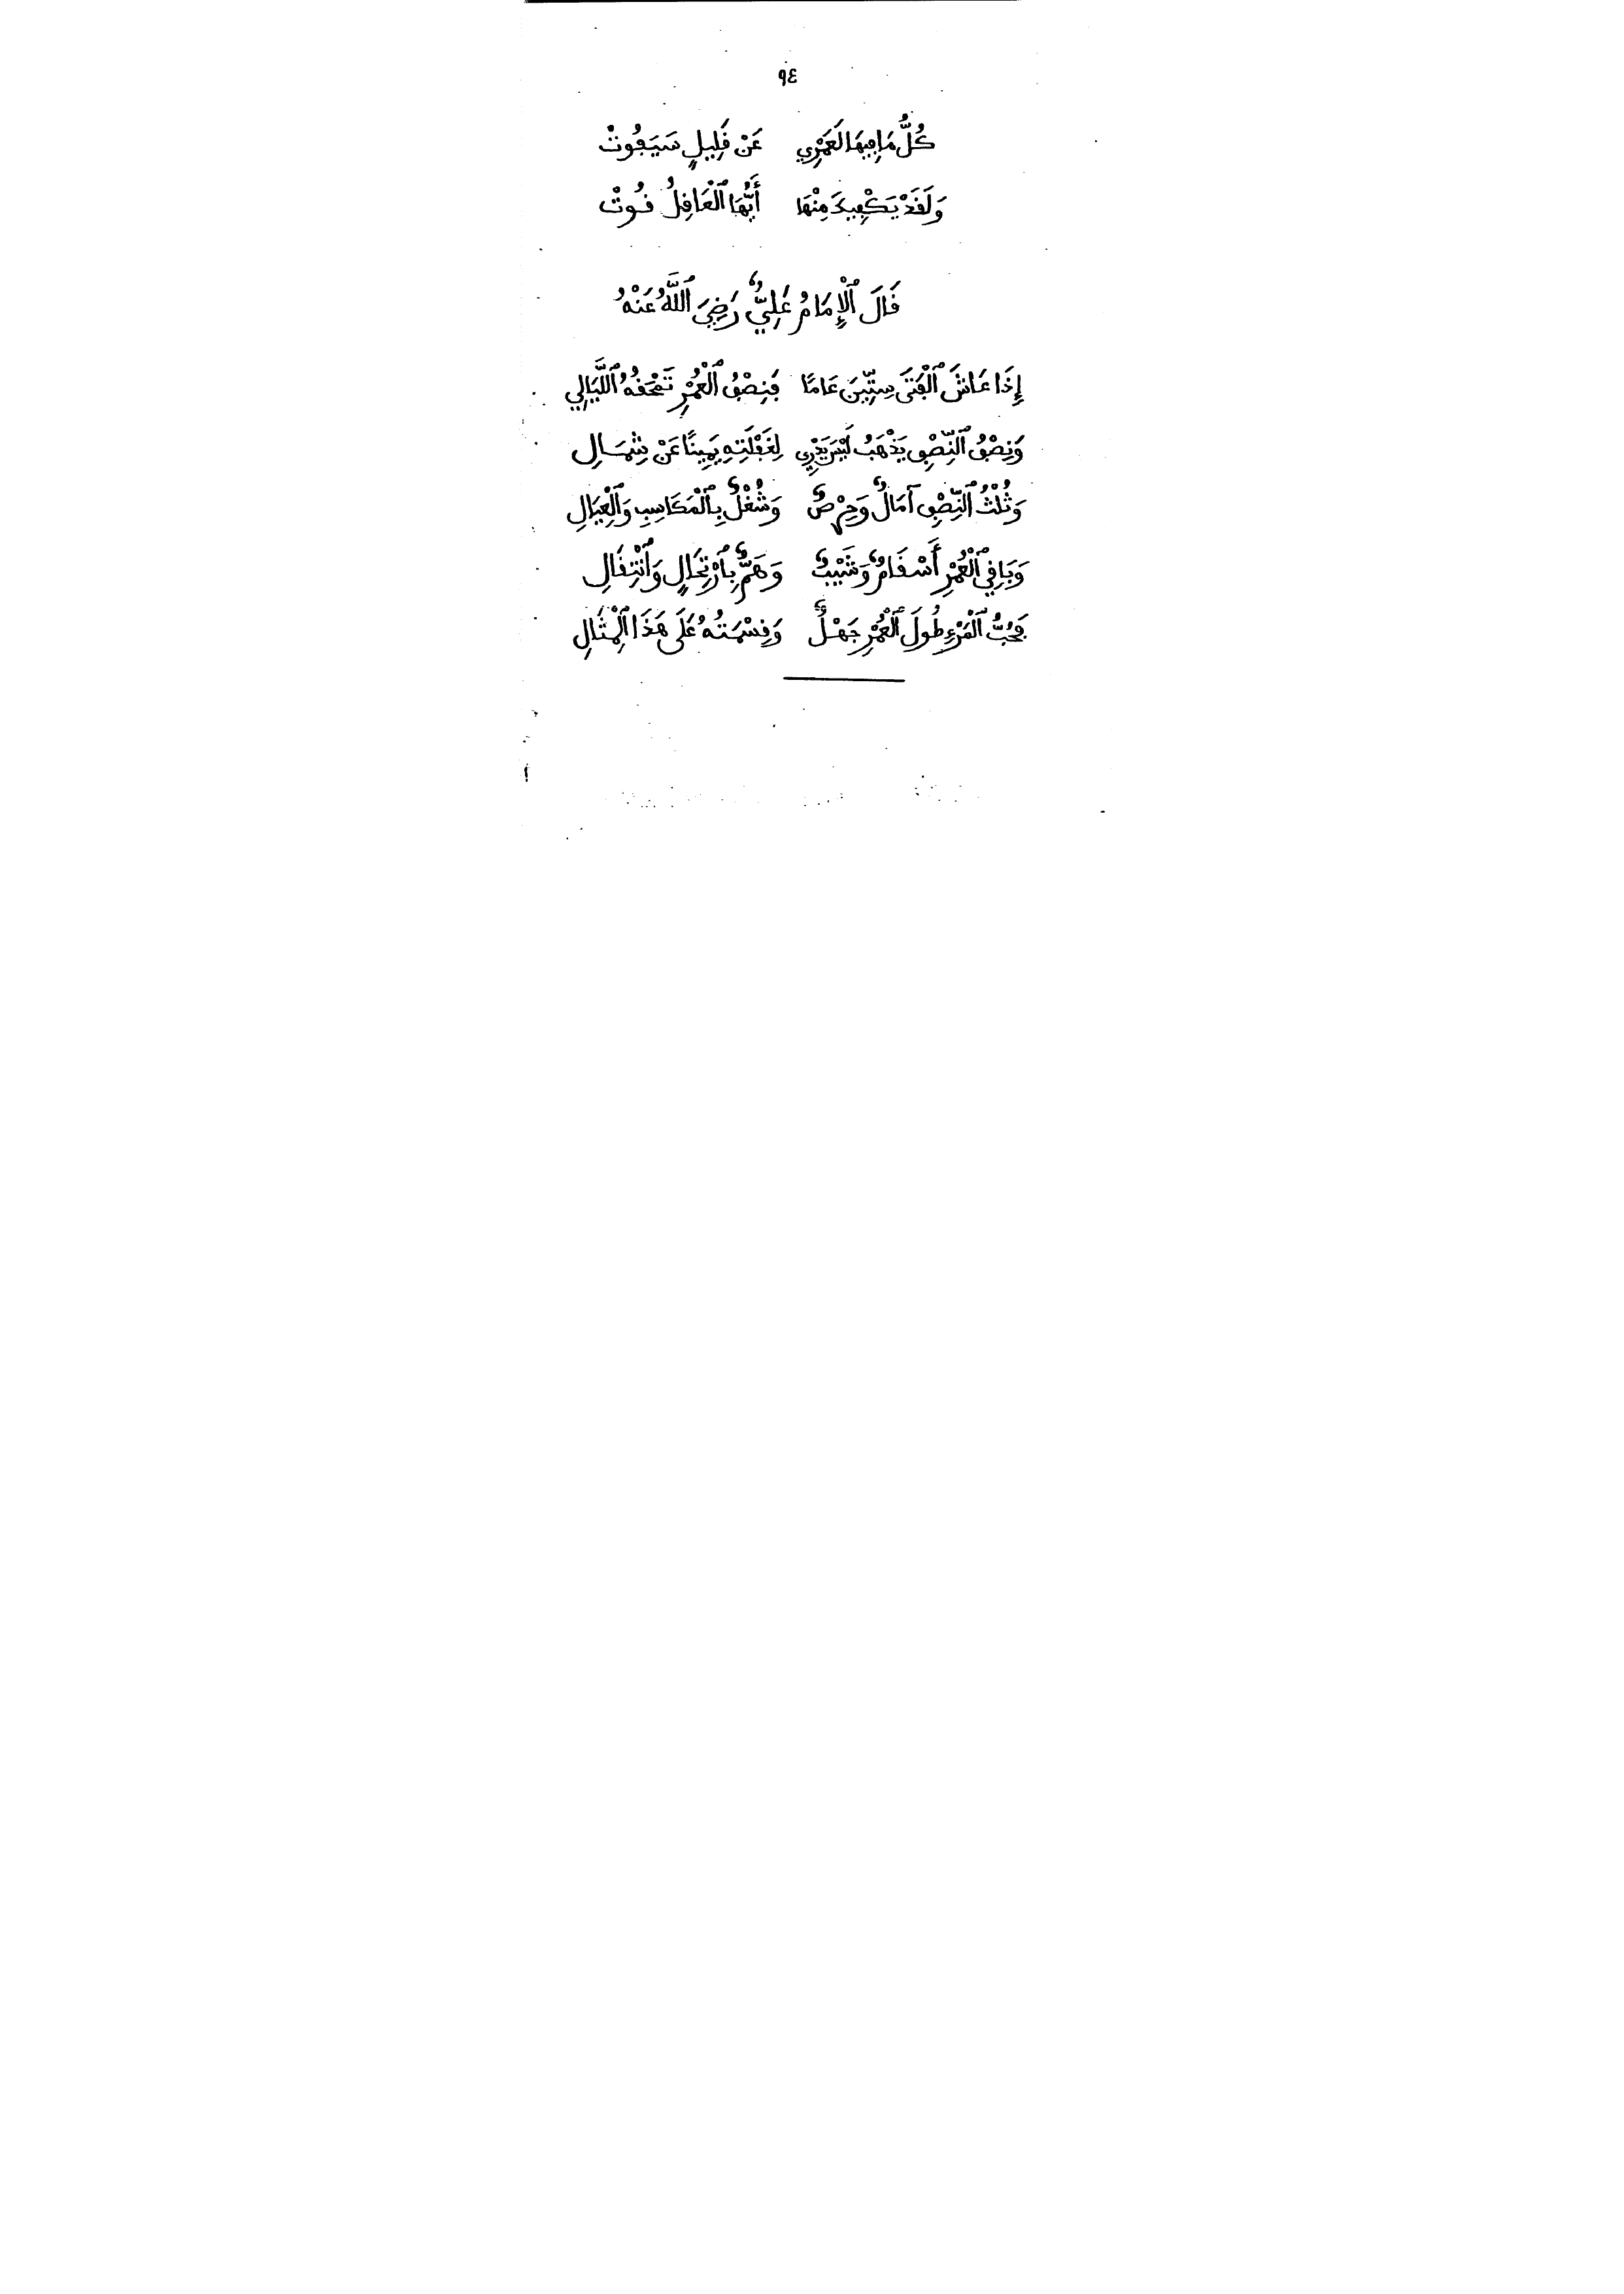 ٩٤
كُلُّ مَا فِيهَا لَعَمْرِي عَنْ قَلِيلٍ سَيَفُوتْ
وَلَقَدْ يَكْفِيكَ مِنْهَا أَيُّهَا ٱلْعَاقِلُ قُوتْ
قَالَ ٱلْإِمَامُ عَلِيٌّ رَضِيَ ٱللَّهُ عَنْهُ
إِذَا عَاشَ ٱلْفَتَى سِتِّينَ عَامًا فَنِصْفُ ٱلْعُمْرِ تَمْحَقُهُ ٱللَّيَالِي
وَنِصْفُ ٱلنِّصْفِ يَذْهَبُ لَيْسَ يَدْرِي لِغَفْلَتِهِ يَمِينًا عَنْ شِمَالِ
وَثُلْثُ ٱلنِّصْفِ آمَالٌ وَحِرْصٌ وَشُغْلٌ بِٱلْمَكَاسِبِ وَٱلْعِيَالِ
وَبَاقِي ٱلْعُمْرِ أَسْقَامٌ وَشَيْبٌ وَهَمٌّ بِٱرْتِحَالٍ وَٱنْتِقَالِ
فَحُبُّ ٱلْمَرْءِ طُولَ ٱلْعُمْرِ جَهْلٌ وَقِسْمَتُهُ عَلَى هَذَا ٱلْمِثَالِ